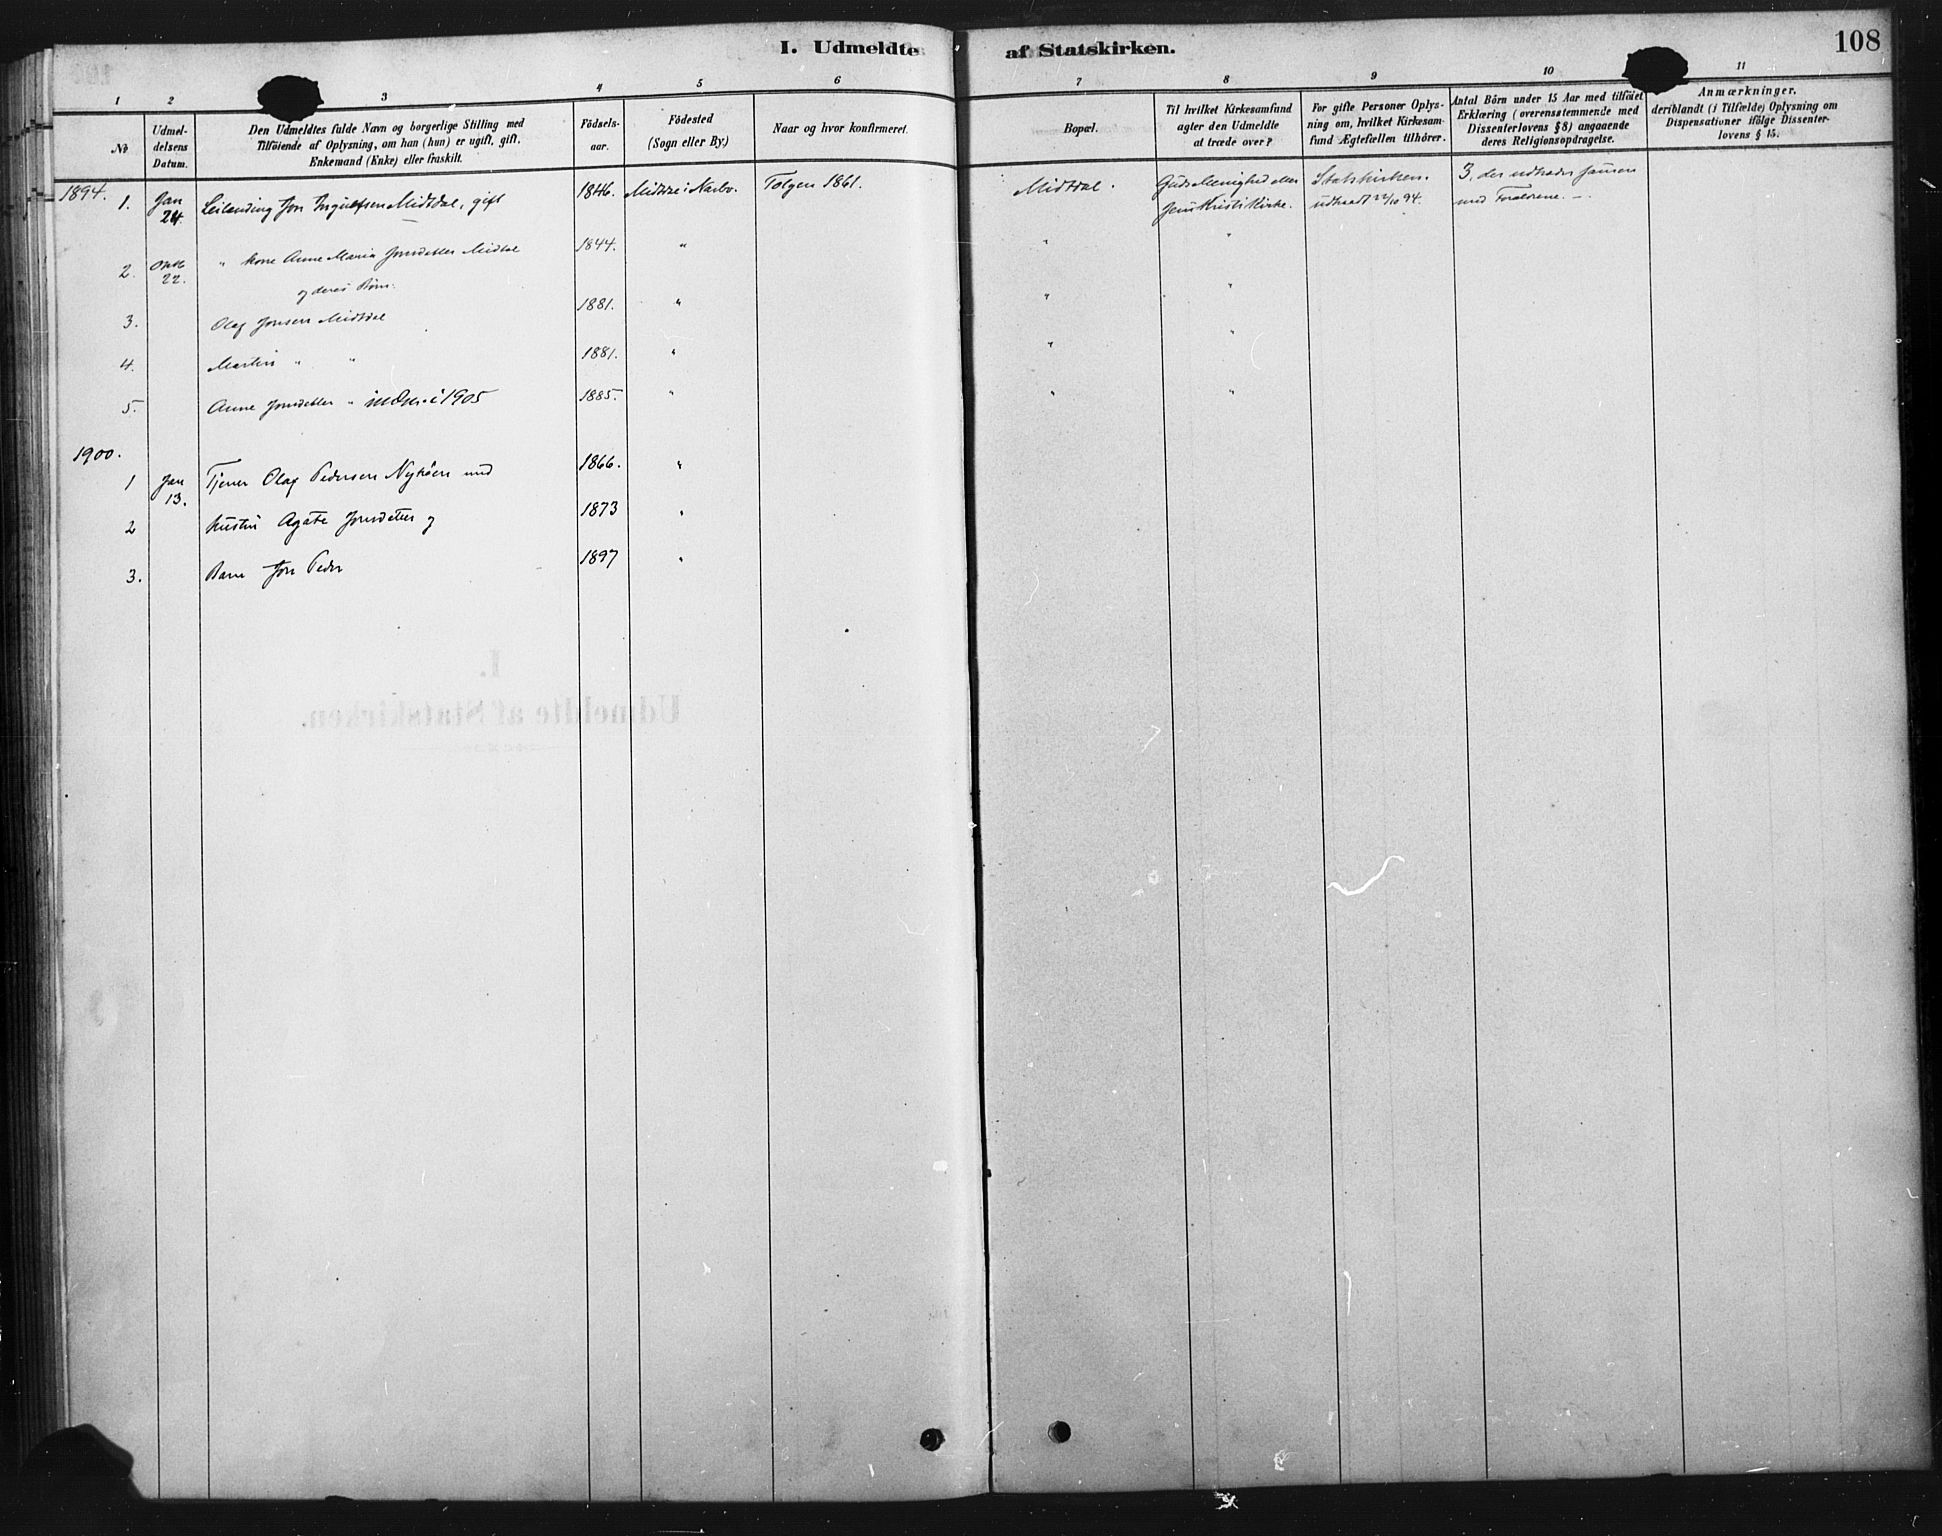 I. Udmeldte af Statskirken. 108
1 2 3 4 5 6 7 8 9 10 11
No
Udmel-
delsens
Datum.
Den Udmeldtes fulde Navn og borgerlige Stilling med
Tilföiende af Oplysning, om han (hun) er ugift, gift,
Enkemand (Enke) eller fraskilt.
Födsels-
aar.
Födested
(Sogn eller By.)
Naar og hvor konfirmeret.
Bopæl.
Til hvilket Kirkesamfund
agter den Udmeldte
at træde over?
For gifte Personer Oplys-
ning om, hvilket Kirkesam-
fund Ægtefællen tilhörer.
Antal Börn under 15 Aar med tilföiet
Erklæring (overensstemmende med
Dissenterlovens § 8) angaaende
deres Religionsopdragelse.
Anmærkninger,
deriblandt (i Tilfælde) Oplysning om
Dispensationer ifölge Dissenter-
lovens § 15.
1894. 1. Jan 24. Leilending Jon Ingulfsen Midtdal, gift 1846. Tolgen 1861. Midtdal. Guds Menighed eller Statskirken. 3, der udtræder sammen
Jesu Kristi Kirke. udtraadt 22/10 94. med Forældrene. —
2. Oktb 22. " Kone Anne Maria Jonsdatter Midtdal 1844. " " "
og deres Börn:
3. Olaf Jonsen Midtdal 1881. " " "
4. Martin " " 1881. " " "
5. Anne Jonsdatter " i 1905 1885. " " "
1900.
1 Jan 13. Tjener Olaf Pedersen Nyhöen med 1866. "
2 Hustru Agate Jonsdatter og 1873 "
3. Barn Jon Peder 1897 "
I.
Udmeldte af Statskirken.